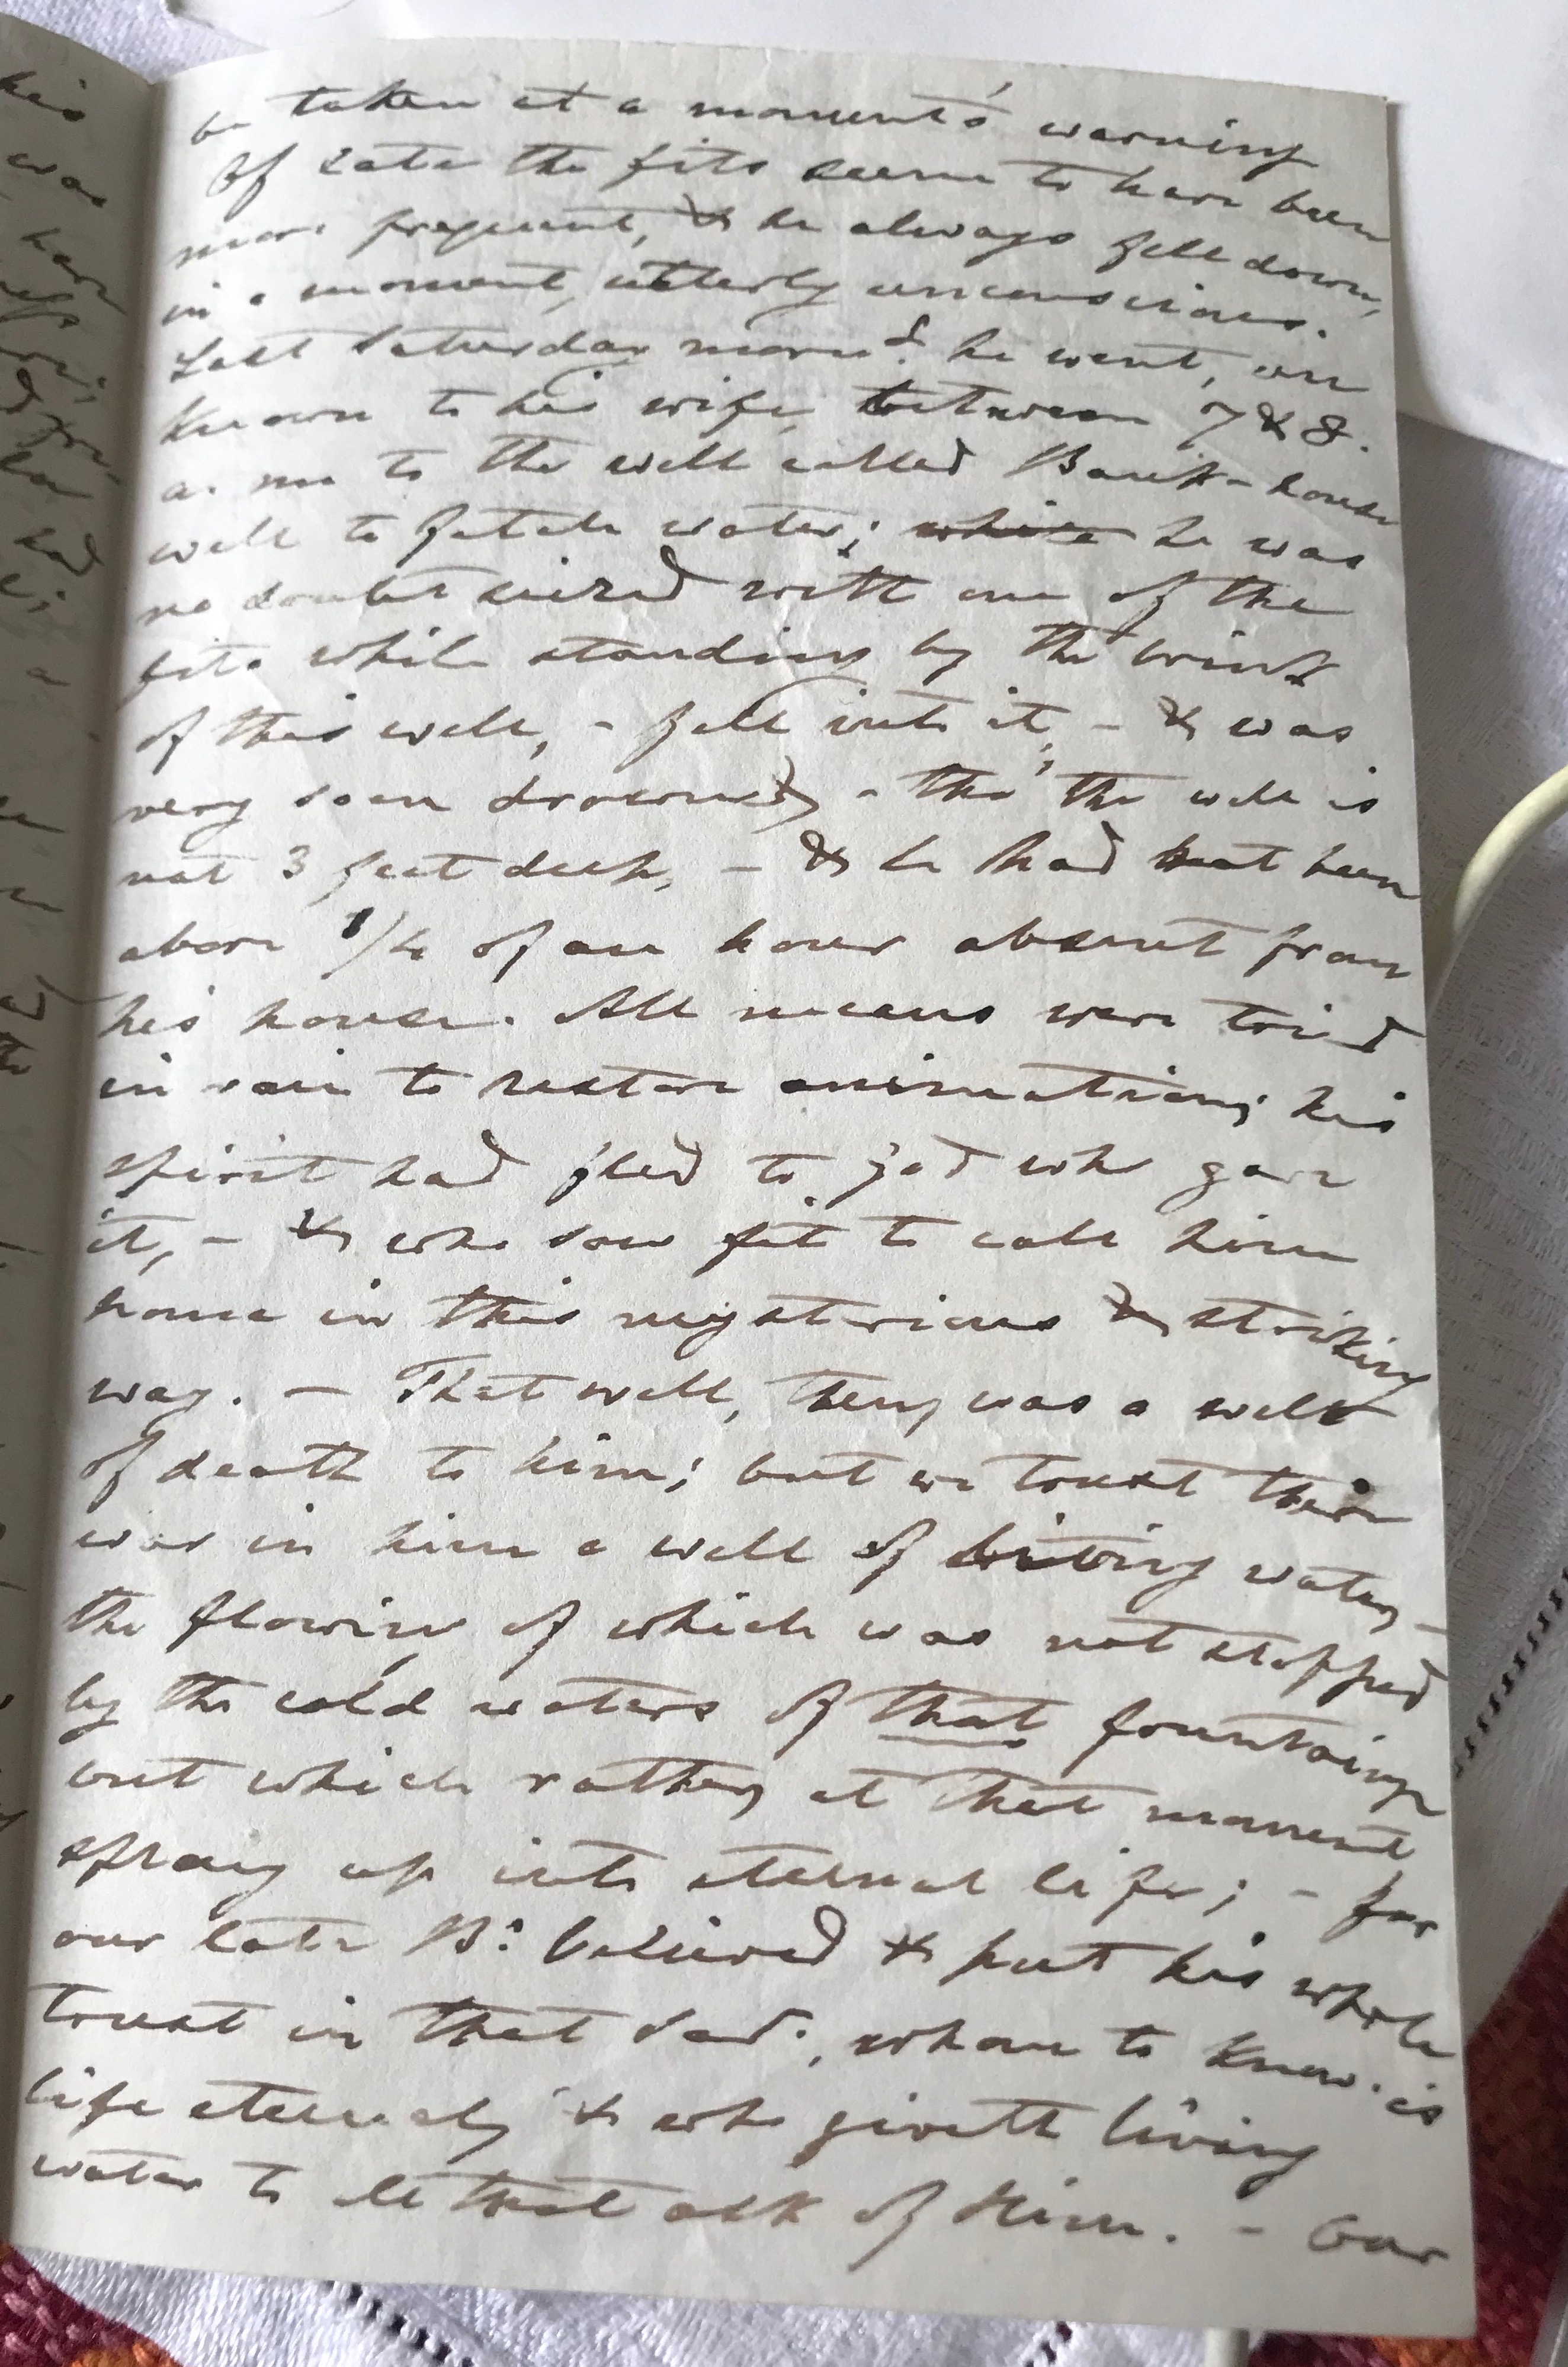 be taken at a moment's warning
Of late the fits seem to have been
more frequent, & he always fell down,
in a moment, utterly unconscious.
Last Saturday morng. he went, un
known to his wife, between 7 & 8.
a. m to the well called Bank-house
well to fetch water; while he was
no doubt seized with one of the
fits while standing by the brink
of this well, - fell into it, - & was
very soon drowned, - tho' the well is
not 3 feet deep, - & he had not been
above 1/4 of an hour absent from
his house. All means were tried
in vain to restore animation; his
spirit had fled to God who gave
it, - & who saw fit to call him
home in this mysterious & striking
way. - That well, then, was a well
of death to him; but we trust there
was in him a well of living water, -
the flowing of which was not stopped
by the cold waters of that fountain,
but which rather at that moment
sprang up into eternal life; - for
our late Br. believed & put his whole
trust in that Savr., whom to know is
life eternal, & who giveth living
water to all that ask of Him. - Our